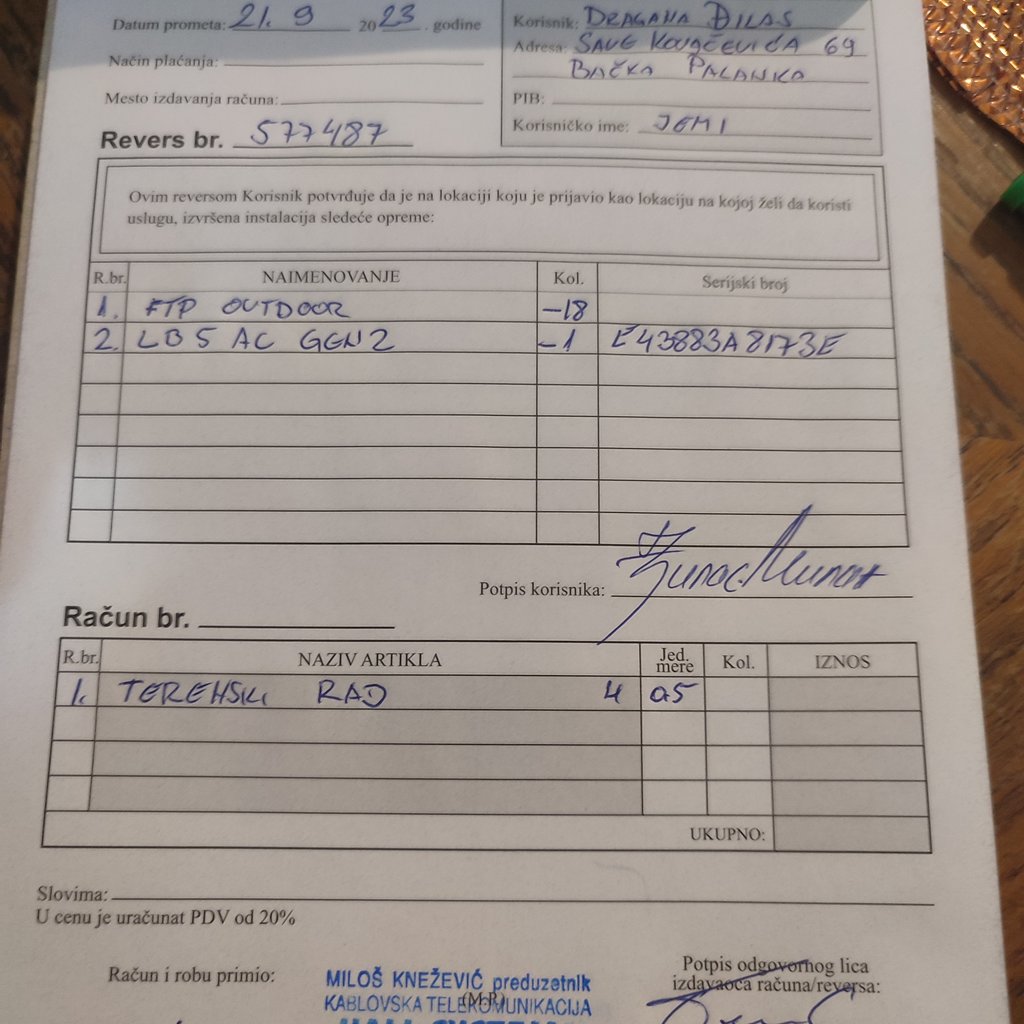 Datum prometa: 21. 9 2023. godine
Način plaćanja:
Mesto izdavanja računa:
Korisnik: DRAGANA ĐILAS
Adresa: SAVE KOVAČEVIĆA 69
BAČKA PALANKA
PIB:
Korisničko ime: JEMI
Revers br. 577487
Ovim reversom Korisnik potvrđuje da je na lokaciji koju je prijavio kao lokaciju na kojoj želi da koristi
uslugu, izvršena instalacija sledeće opreme:
R.br. NAIMENOVANJE Kol. Serijski broj
1. FTP OUTDOOR -18
2. LB5 AC GEN2 -1 E43883A8173E
Potpis korisnika:
Račun br.
R.br. NAZIV ARTIKLA Jed. mere Kol. IZNOS
1. TERENSKI RAD 4 05
UKUPNO:
Slovima:
U cenu je uračunat PDV od 20%
Račun i robu primio:
MILOŠ KNEŽEVIĆ preduzetnik
(M.P.)
KABLOVSKA TELEKOMUNIKACIJA
Potpis odgovornog lica
izdavaoca računa/reversa: